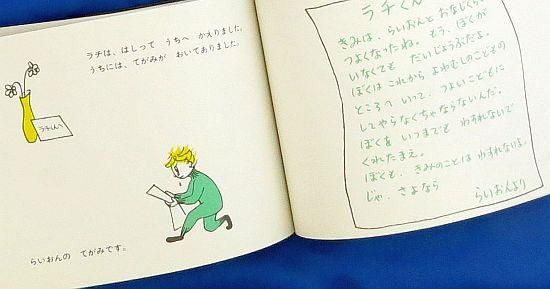 ラチは、はしって うちへ かえりました。
うちには、てがみが おいてありました。
ラチくんへ
らいおんの てがみです。
ラチくん
きみは、らいおんと おなじくらい
つよくなったね。もう、ぼくが
いなくても だいじょうぶだよ。
ぼくは これから よわむしのこどもの
ところへ いって、つよいこどもに
してやらなくちゃならないんだ。
ぼくを いつまでも わすれないで
くれたまえ。
ぼくも、きみのことは わすれないよ。
じゃ、さよなら
らいおんより